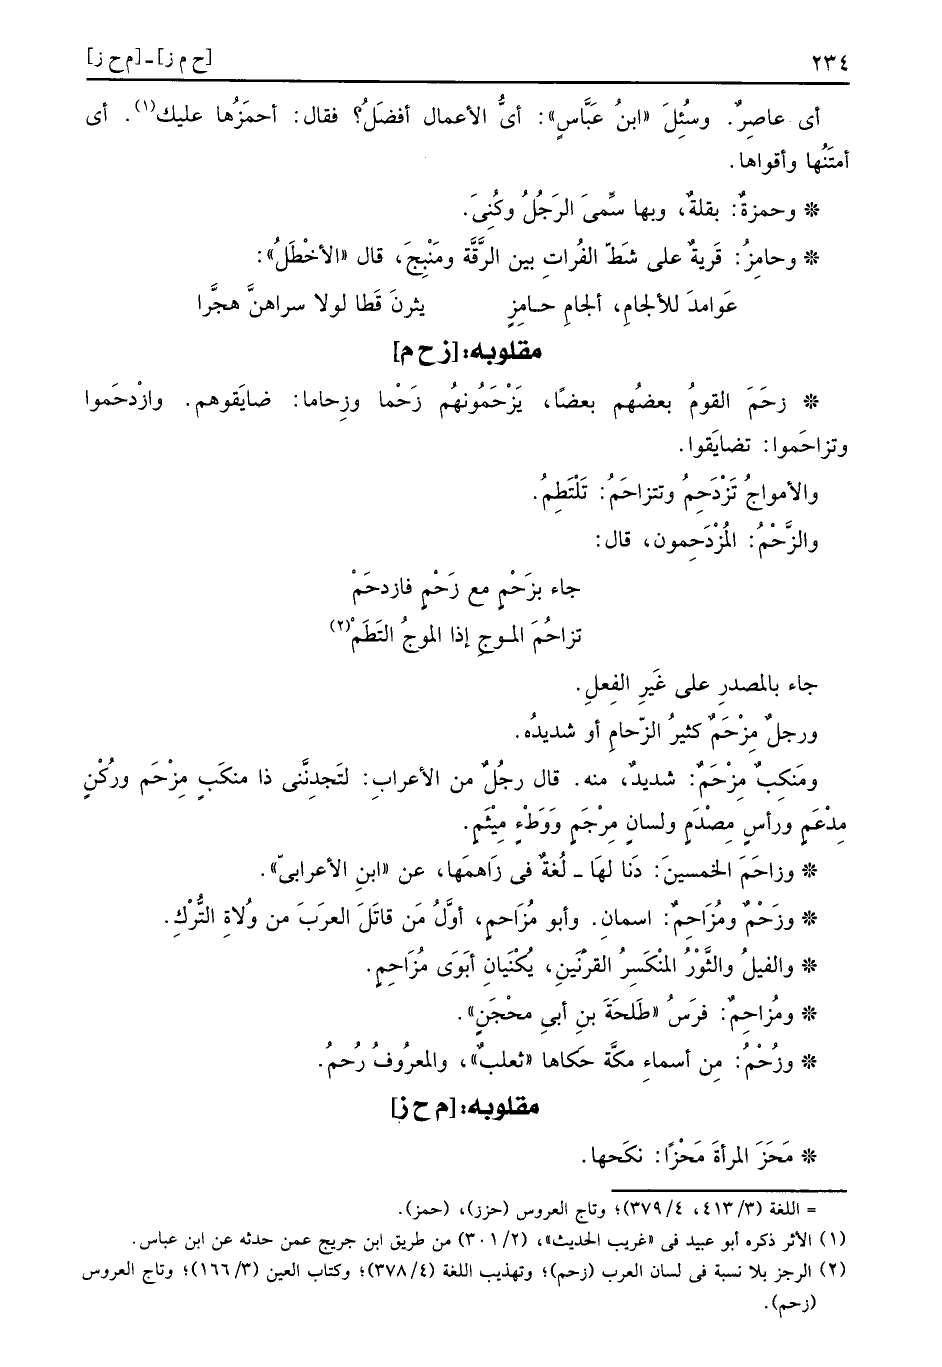 ٢٣٤
[ح م ز] - [م ح ز]
أى عاصِرٌ. وسُئلَ «ابنُ عَبَّاسٍ»: أىُّ الأعمال أفضَلُ؟ فقال: أحمَزُها عليك(١). أى
أمتَنُها وأقواها.
* وحمزةُ: بقلةٌ، وبها سُمِّىَ الرَجُلُ وكُنِىَ.
* وحامِزُ: قَريةٌ على شَطّ الفُراتِ بين الرَّقَّة ومَنْبِجَ، قال «الأخْطَلُ»:
عَوامدَ للألجامِ، ألجامِ حـامِزٍ يثرنَ قَطا لولا سراهنَّ هجَّرا
مقلوبه: [ز ح م]
* زحَمَ القومُ بعضُهم بعضًا، يَزْحَمُونهُم زَحْما وزِحاما: ضايَقوهم. وازْدحَموا
وتزاحَموا: تضايَقوا.
والأمواجُ تَزْدَحِمُ وتتزاحَمُ: تَلْتَطِمُ.
والزَّحْمُ: المُزْدَحِمون، قال:
جاء بزَحْمٍ مع زَحْمٍ فازدحَمْ
تزاحُمَ المـوجِ إذا الموجُ التَطَمْ(٢)
جاء بالمصدرِ على غَيرِ الفِعلِ.
ورجلٌ مِزْحَمٌ كثيرُ الزّحامِ أو شديدُه.
ومَنكِبٌ مِزْحَمٌ: شديدٌ، منه. قال رجُلٌ من الأعرابِ: لتَجدنَّنى ذا منكَبٍ مِزْحَم ورُكْنٍ
مِدْعَمٍ ورأسٍ مِصْدَمٍ ولسان مِرْجَمٍ وَوَطْءٍ مِيْثَمٍ.
* وزاحَمَ الخمسينَ: دَنا لهَا ـ لُغةٌ فى زَاهمَها، عن «ابنِ الأعرابىّ».
* وزَحْمٌ ومُزَاحِمٌ: اسمانِ. وأبو مُزَاحمٍ، أوَّلُ مَن قاتَلَ العرَبَ من وُلاةِ التُّرْكِ.
* والفيلُ والثَّوْرُ المنْكَسرُ القرْنَينِ، يُكْنَيانِ أبَوَى مُزَاحِمٍ.
* ومُزاحِمٌ: فرَسُ «طَلحَةَ بنِ أبىِ محْجَنٍ».
* وزُحْمُ: مِن أسماءِ مكَّة حَكاها «ثعلبٌ»، والمعرُوفُ رُحمُ.
مقلوبه: [م ح ز]
* مَحَزَ المرأةَ مَحْزًا: نكَحها.
= اللغة (٤١٣/٣، ٣٧٩/٤)؛ وتاج العروس (حزز)، (حمز).
(١) الأثر ذكره أبو عبيد فى «غريب الحديث»، (٣٠١/٢) من طريق ابن جريج عمن حدثه عن ابن عباس.
(٢) الرجز بلا نسبة فى لسان العرب (زحم)؛ وتهذيب اللغة (٣٧٨/٤)؛ وكتاب العين (١٦٦/٣)؛ وتاج العروس
(زحم).